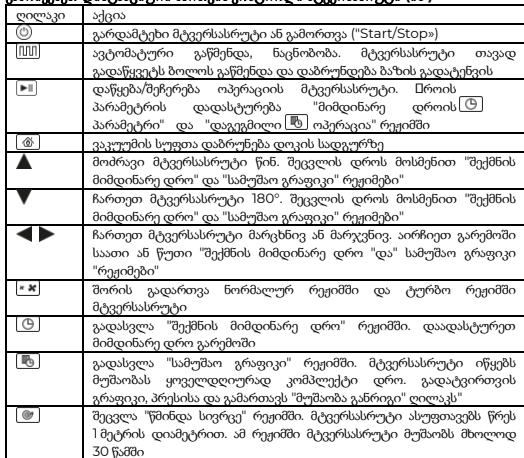 ღილაკი აქცია
გარდამტეხი მტვერსასრუტი ან გამორთვა ("Start/Stop»)
ავტომატური გაწმენდა, ნაცნობობა. მტვერსასრუტი თავად
გადაწყვეტს ბოლოს გაწმენდა და დაბრუნდება ბაზის გადატენვის
დაწყება/შეჩერება ოპერაციის მტვერსასრუტი. დროის
პარამეტრის დადასტურება "მიმდინარე დროის
პარამეტრი" და "დაგეგმილი ოპერაცია" რეჟიმში
ვაკუუმის სუფთა დაბრუნება დოკის სადგურზე
მოძრავი მტვერსასრუტი წინ. შეცვლის დროს მოსმენით "შექმნის
მიმდინარე დრო" და "სამუშაო გრაფიკი" რეჟიმები"
ჩართეთ მტვერსასრუტი 180°. შეცვლის დროს მოსმენით "შექმნის
მიმდინარე დრო" და "სამუშაო გრაფიკი" რეჟიმები"
ჩართეთ მტვერსასრუტი მარცხნივ ან მარჯვნივ. აირჩიეთ გარემოში
საათი ან წუთი "შექმნის მიმდინარე დრო "და" სამუშაო გრაფიკი
"რეჟიმები"
შორის გადართვა ნორმალურ რეჟიმში და ტურბო რეჟიმში
მტვერსასრუტი
გადასვლა "შექმნის მიმდინარე დრო" რეჟიმში. დაადასტურეთ
მიმდინარე დრო გარემოში
გადასვლა "სამუშაო გრაფიკი" რეჟიმში. მტვერსასრუტი იწყებს
მუშაობას ყოველდღიურად კომპლექტი დრო. გადატვირთვის
გრაფიკი, პრესისა და გამართავს "მუშაობა განრიგი" ღილაკს"
შეცვლა "წმინდა სივრცე" რეჟიმში. მტვერსასრუტი ასუფთავებს წრეს
1 მეტრის დიამეტრით. ამ რეჟიმში მტვერსასრუტი მუშაობს მხოლოდ
30 წამში